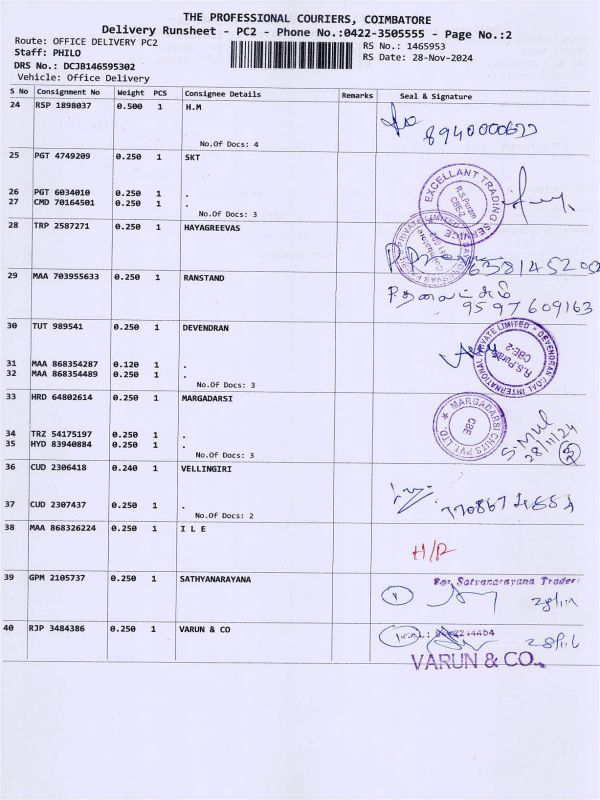 THE PROFESSIONAL COURIERS, COIMBATORE
Delivery Runsheet - PC2 - Phone No.:0422-3505555 - Page No.:2
Route: OFFICE DELIVERY PC2
RS No.: 1465953
Staff: PHILO
RS Date: 28-Nov-2024
DRS No.: DCJB146595302
Vehicle: Office Delivery
S No Consignment No Weight PCS Consignee Details Remarks Seal & Signature
24 RSP 1898037 0.500 1 H.M
No.Of Docs: 4
25 PGT 4749209 0.250 1 SKT
EXCELLANT TRADING SERVICE
R.S.Puram
CBE-2
26 PGT 6034010 0.250 1 .
27 CMD 70164501 0.250 1 .
No.Of Docs: 3
28 TRP 2587271 0.250 1 HAYAGREEVAS
29 MAA 703955633 0.250 1 RANSTAND
9597609163
30 TUT 989541 0.250 1 DEVENDRAN
DEVENDRAN COAL INTERNATIONAL PRIVATE LIMITED
R.S.Puram
CBE-2
31 MAA 868354287 0.120 1 .
32 MAA 868354489 0.250 1 .
No.Of Docs: 3
33 HRD 64802614 0.250 1 MARGADARSI
MARGADARSI CHITS PVT. LTD.
CBE
28/11/24
34 TRZ 54175197 0.250 1 .
35 HYD 83940884 0.250 1 .
No.Of Docs: 3
36 CUD 2306418 0.240 1 VELLINGIRI
37 CUD 2307437 0.250 1 .
No.Of Docs: 2
38 MAA 868326224 0.250 1 I L E
39 GPM 2105737 0.250 1 SATHYANARAYANA
For Satyanarayana Trader
40 RJP 3484386 0.250 1 VARUN & CO
VARUN & CO.